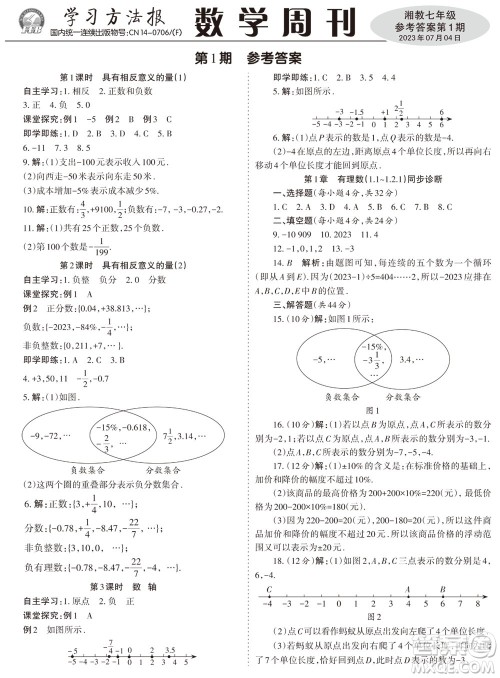 学习方法报
国内统一连续出版物号:CN14-0706/(F)
数学周刊
湘教七年级
参考答案第1期
2023年07月04日
第1期 参考答案
第1课时 具有相反意义的量(1)
自主学习:1.相反 2.正数和负数
3.正 4.负 5.0
课堂探究:例1 -5 例2 B 例3 C
即学即练:1.C 2.B 3.C 4.A 5.D
6.-11 7.四 8.9
9.解:(1)支出-100元表示收入100元.
(2)向西走-50米表示向东走50米.
(3)成本增加-5%表示成本减少5%.
10.解:正数有:4/3,+9100,;负数有:-7,-3,-0.27,-2.
11.解:(1)共有25个正数,25个负数.
(2)第100个数是-1/199.
第2课时 具有相反意义的量(2)
自主学习:1.负整 负分 2.分数
课堂探究:例1 A
例2 正分数:{0.04,+38.813,…};
负数:{-2023,-84%,-1/3,…};
非负整数:{0,17,…}.
即学即练:1.C 2.A 3.D
4.+3,0,11 -1/2,-0.7
5.解:(1)如图.
-9,-72,…
-15%,-0.618,
-1/2,…
7/2,3.14,…
负数集合 分数集合
(2)这两个圈的重叠部分表示负分数集合.
6.解:正数:{3,+1/4,10,…};
分数:{-0.78,+1/4,-8.47,-22/7,…};
非负整数:{3,10,0,…};
负有理数:{-0.78,-8.47,-22/7,…}.
第3课时 数 轴
自主学习:1.原点 2.负 正
课堂探究:例1 A
例2 如图所示.
即学即练:1.C 2.C 3.D 4.0
5.解:如图所示.
6.解:(1)点P表示的数是1,点Q表示的数是-4.
(2)-4在原点的左边,距离原点4个单位长度,所以再向右
移动4个单位长度才能回到原点.
第1章 有理数(1.1~1.2.1)同步诊断
一、选择题(每小题4分,共32分)
1.C 2.A 3.C 4.D 5.A 6.D 7.B 8.C
二、填空题(每小题4分,共24分)
9.-10 909 10.2023 11.4
12.-1,0,1,2 13.-3
14.B 解析:由题图可知,每连续的五个数为一个循环
(即从A到E).因为(2023-1)÷5=404……2,所以-2023应排
在A,B,C,D,E中B的位置.
三、解答题(共44分)
15.(10分)解:如图1所示:
-5,…
-15%,
-3 1/3,
…
+3,0,…
图1
16.(10分)解:(1)若以点B为原点,点A,C表示的数分
别为-2,1;若以点C为原点,点A,B表示的数分别为-3,-1.
(2)点A,B,C表示的数分别为-1,1,2.
17.(12分)解:(1)±10%的含义是:在标准价格的基础上,
加价和降价的幅度不超过10%.
(2)该商品的最高价格为200+200×10%=220(元),最
低价格为200-200×10%=180(元).
(3)因为220-200=20(元),200-180=20(元),所以这件商
品加价和降价的幅度不超过20元.所以该商品的价格变化
范围可表示为±20元.
18.(12分)解:(1)如图2,A,B,C三点表示的数分别是4,
6,-4.
图2
(2)点C可以看作是蚂蚁从原点出发向左爬了4个单位.
(3)若蚂蚁从原点出发向左爬了3个单位长度到达点D,
则点D表示的数为-3.